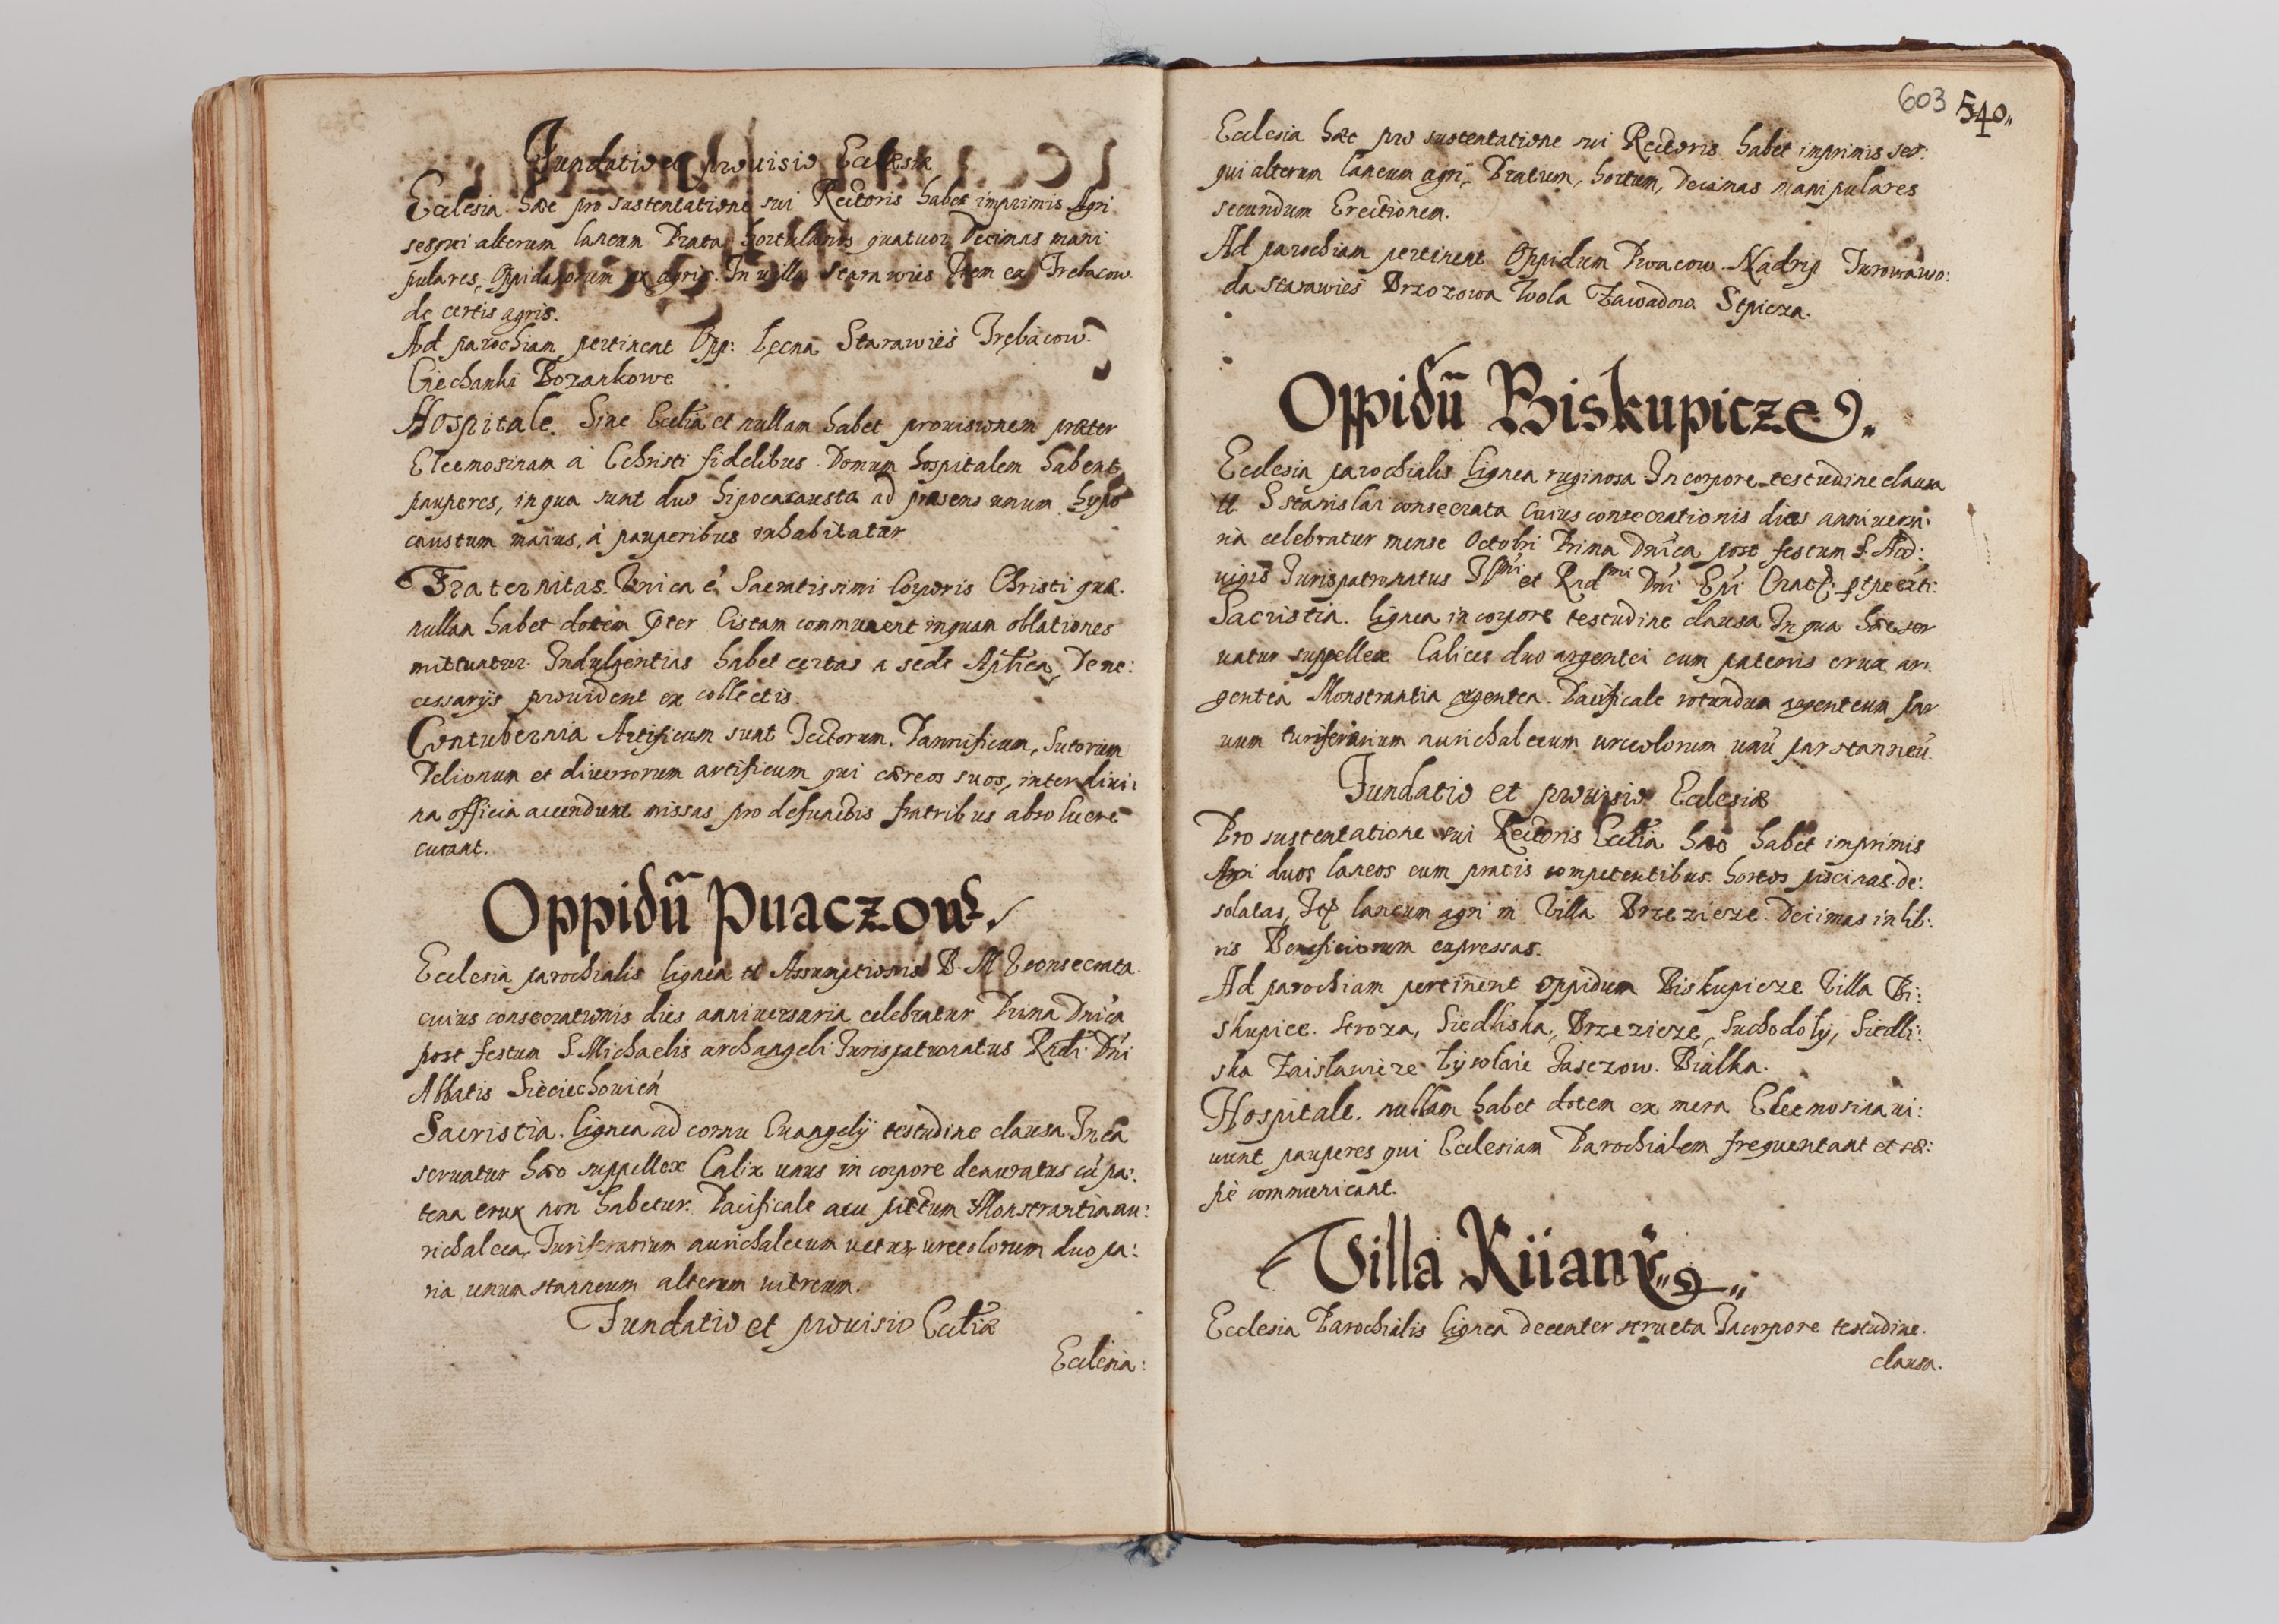 Fundatio et prouisio Ecclesiæ
Ecclesia hæc pro sustentatione sui Rectoris habet imprimis Agri
sesqui alterum laneum Prata hortulanos quatuor Decimas mani
pulares, Oppidanorum ex agris. In villa Starawies Item ex Trebacow
de certis agris.
Ad parochiam pertinent Opp: Lęcna Starawies Trębacow.
Ciechanki Bozankowe
Hospitale. Sine Ecclia et nullam habet prouisionem præter
Eleemosinam a Christi fidelibus. Domum hospitalem habent
pauperes, in qua sunt duo hipocacausta ad præsens unum hypo
caustum maius, à pauperibus inhabitatur
Fraternitas. Vnica e Sacratissimi Corporis Christi quæ
nullam habet dotem pter Cistam communem inquam oblationes
mittuntur. Indulgentias habet certas a sede Aplica, De ne:
cessarijs prouident ex collectis.
Contubernia Artificum sunt Textorum. Pannificum, Sutorum
Pelionum et diuersorum artificum qui cæreos suos, inter diui:
na officia accendunt missas pro defunctis fratribus absoluere
curant.
Oppidũ Puaczow
Ecclesia parochialis lignea tt Assumptionis B. M V consecrata.
cuius consecrationis dies anniuersaria celebratur Prima Dnica
post festum S. Michaelis archangeli Jurispatronatus Rndi Dni
Abbatis Sieciechouien
Sacristia. lignea ad cornu Euangelij testudine clausa In ea
seruatur hæc suppellex Calix unus in corpore deauratus cũ pa:
tena crux non habetur. Pacificale acu pictum Monstrantia au:
richalcea, Turiferarium aurichalceum uetus urceolorum duo pa:
ria unum stanneum alterum uitreum.
Fundatio et prouisio Eccliæ
Ecclesia:
603 540
Ecclesia hæc pro sustentatione sui Rectoris habet imprimis ses:
qui alterum laneum agri, Pratum, hortum, Decimas manipulares
secundum Erectionem.
Ad parochiam pertinent Oppidum Puacow. Nadrip Turowawo:
da Starawies Brzozowa Wola Zawadow. Stpicza.
Oppidũ Biskupicze
Ecclesia parochialis lignea ruginosa In corpore testudine clausa
tt S Stanislai consecrata cuius consecrationis dies anniuersa:
ria celebratur mense Octobri Prima Dnica post festum S. Hed:
uigis Jurispatronatus Illmi et Rndmi Dni Epi Crac
Sacristia. lignea in corpore testudine clausa In qua hæc ser
uatur suppellex Calices duo argentei cum patenis crux ar:
gentea Monstrantia argentea. Pacificale rotundum argenteum par
uum turiferarium aurichalceum urceolorum unũ par stanneũ.
Fundatio et prouisio Ecclesiæ
Pro sustentatione sui Rectoris Ecclia hæc habet imprimis
Agri duos laneos cum pratis competentibus. hortos piscinas. de:
solatas, Itẽ laneum agri in Villa Brzezicze. Decimas in lib:
ris Beneficiorum expressas.
Ad parochiam pertinent oppidum Biskupicze Villa Bi:
skupice. Stroza, Siedliska, Brzezicze, Suchodoły, Siedli:
ska Zaisławicze Łysołaie Jasczow. Białka.
Hospitale. nullam habet dotem ex mera Eleemosina ui:
uunt pauperes qui Ecclesiam Parochialem frequentant et sæ:
pè communicant.
Villa Kiiany
Ecclesia Parochialis lignea decenter structa In corpore testudine.
clausa.